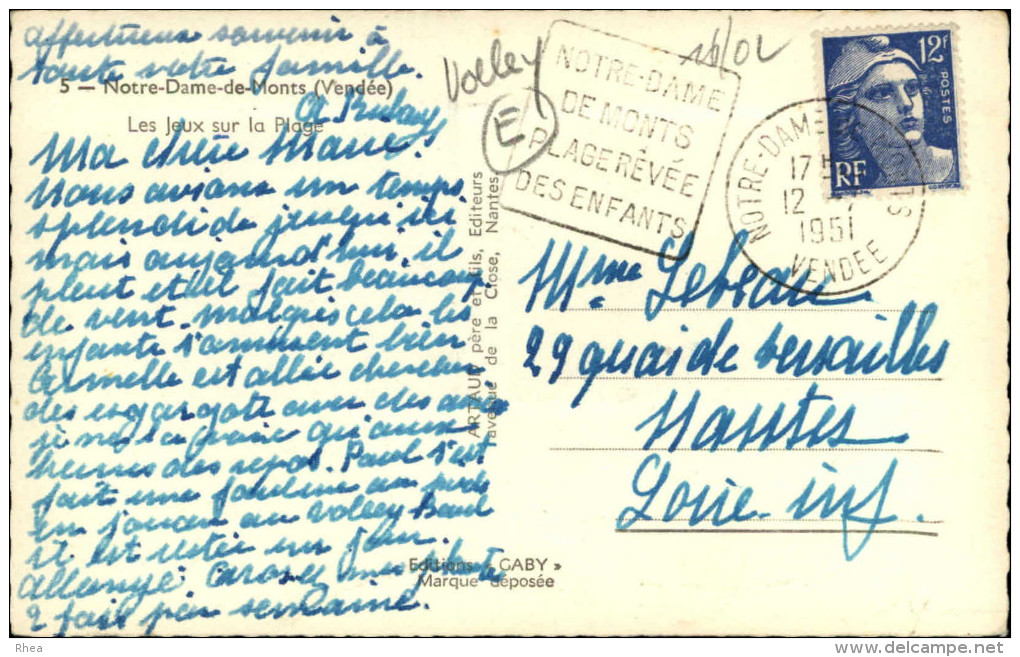 affectueux souvenir à
toute votre famille.
5 — Notre-Dame-de-Monts (Vendée)
Les Jeux sur la Plage
Ma chère Marie.
Nous avions un temps
splendide jusqu'ici
mais aujourd'hui il
pleut et il fait beaucoup
de vent. malgrés cela les
enfants s'amusent bien
Armelle est allée chercher
des esgargots avec des amies
je ne la voie qu'aux
heures des repas. Paul s'est
fait une fouline au pied
en jouan au Volley Baal
il est restée un jour
allongé. Carosel
2 fois par semaine.
ARTAUD père et fils, Editeurs
avenue de la Close, Nantes
Editions « GABY »
Marque déposée
Volley
E
16/02
NOTRE-DAME
DE MONTS
PLAGE RÊVÉE
DES ENFANTS
NOTRE-DAME
17
12
1951
VENDEE
12F
POSTES
RF
Mme Lebeau
29 quai de versailles
Nantes
Loire inf.
Rhea
www.delcampe.net